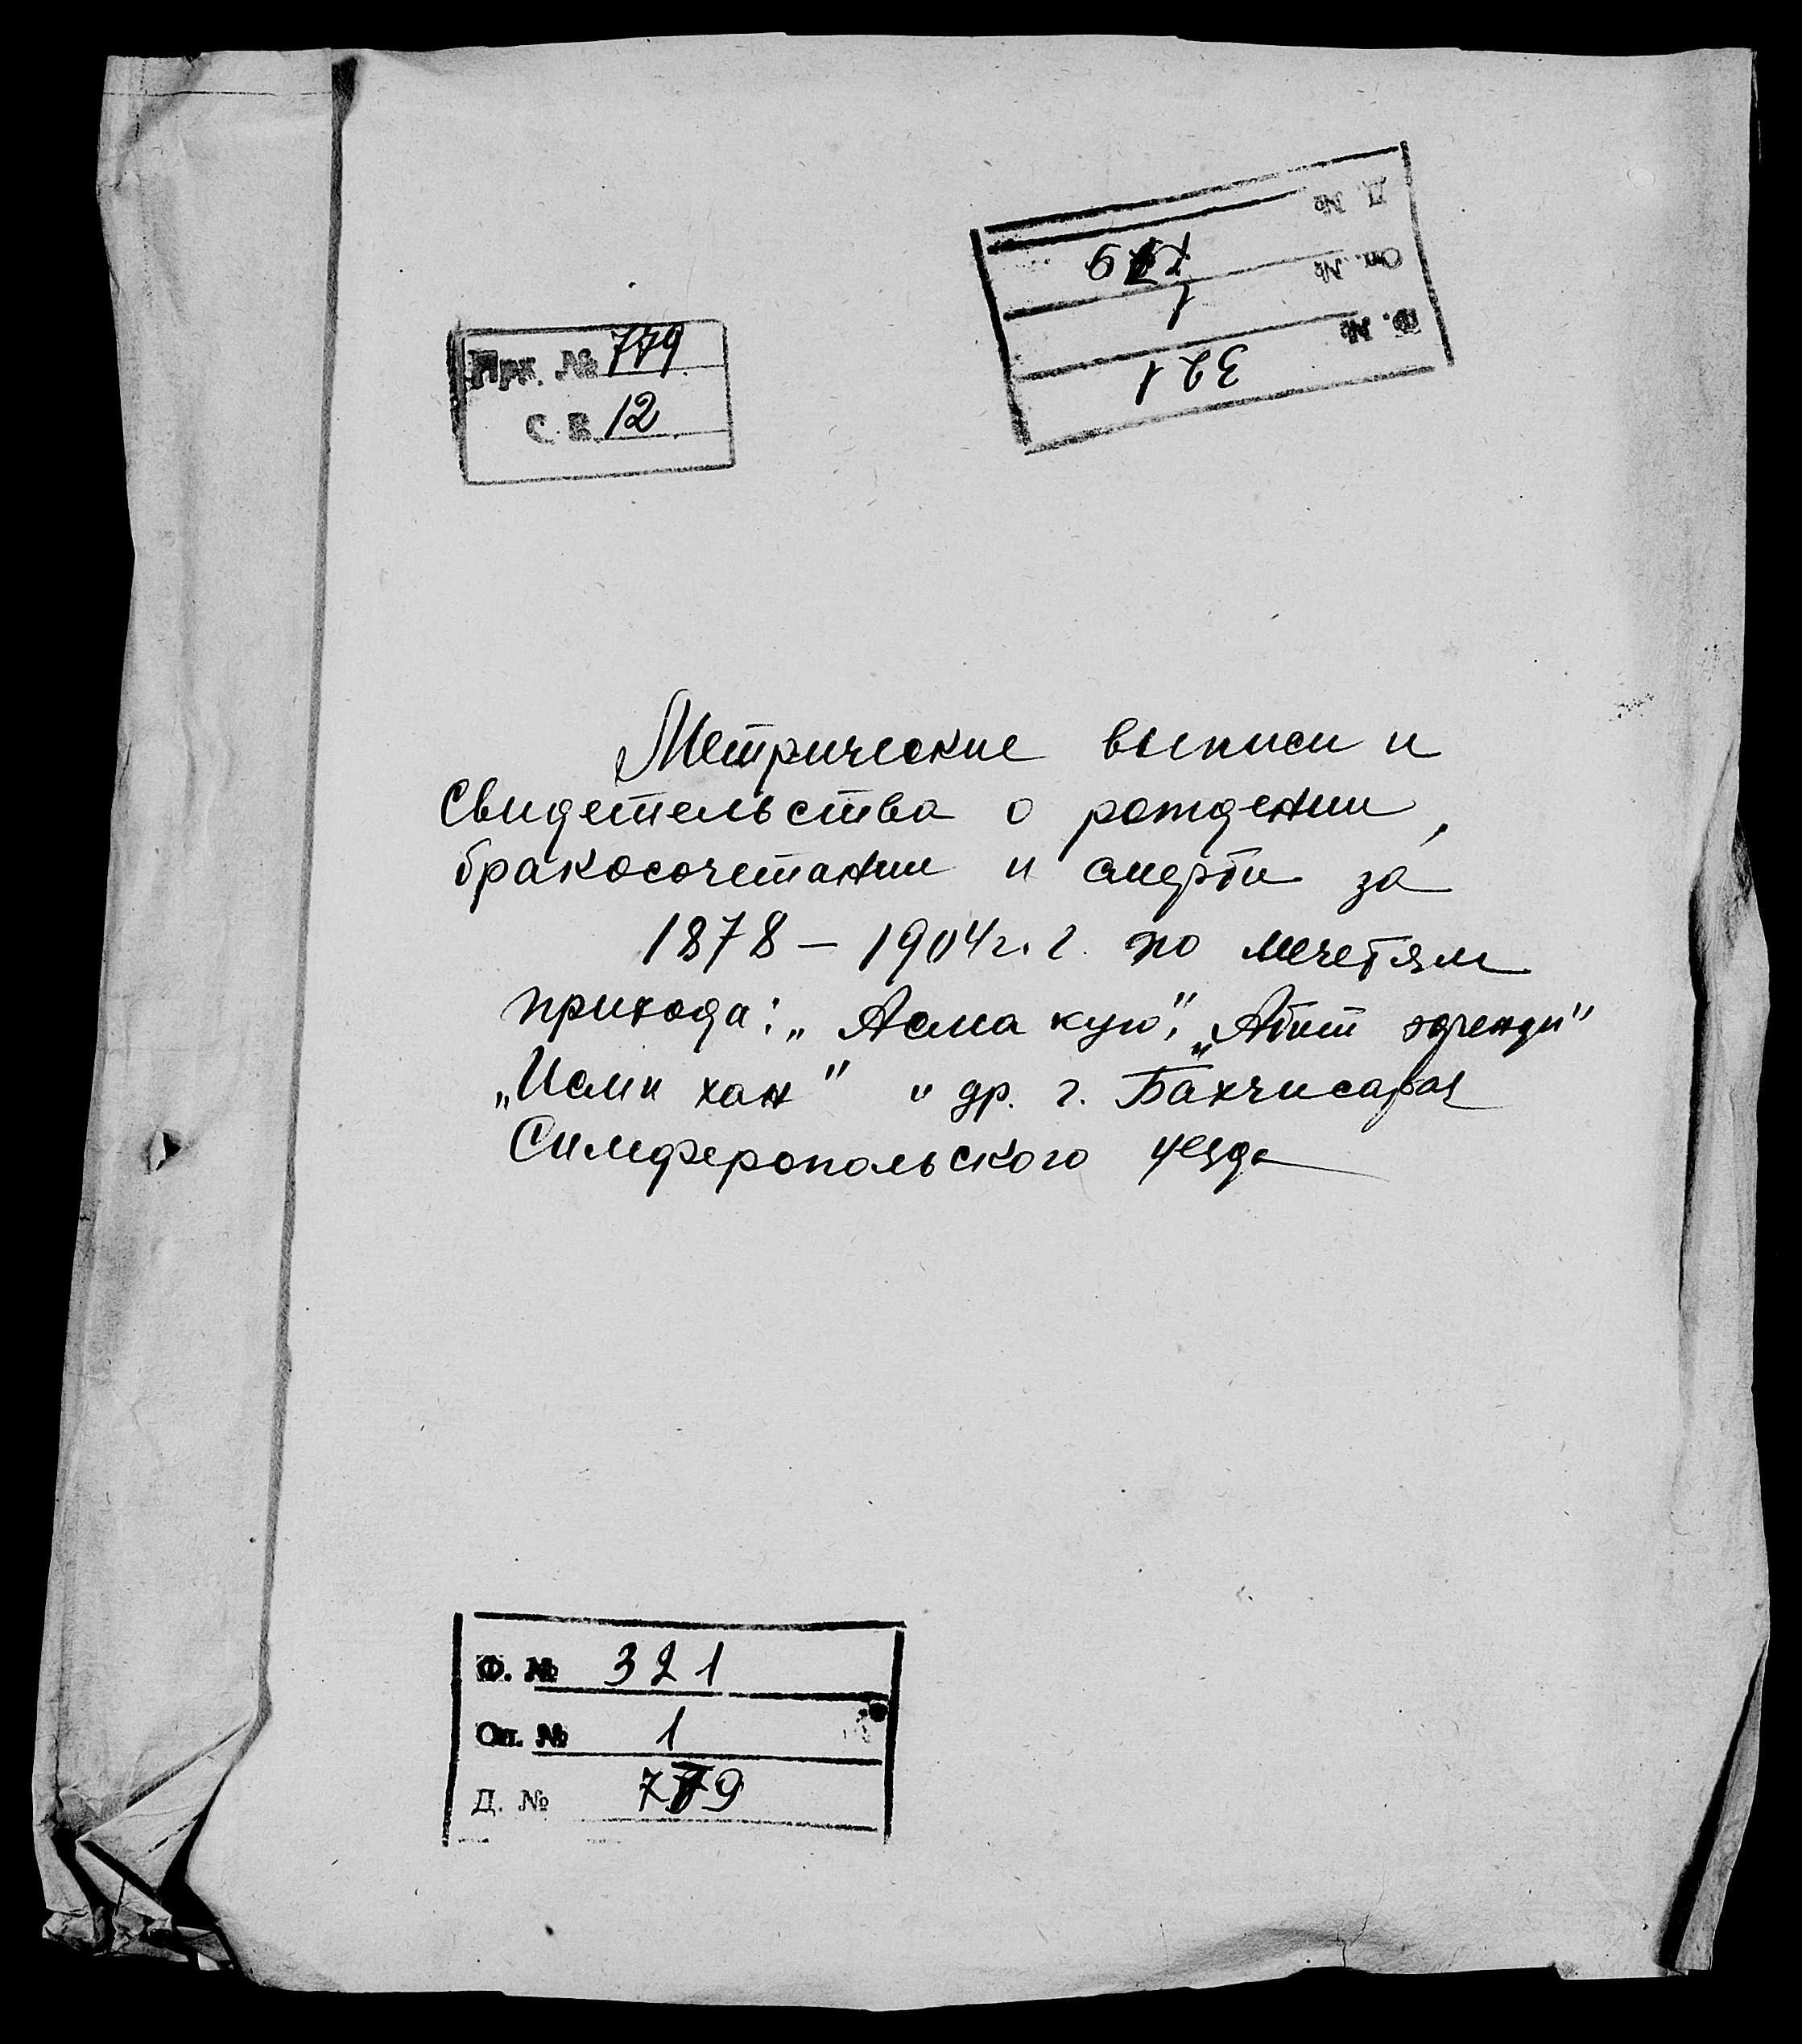 Д. № 779
Оп. № 1
Ф. № 321
Арх. № 779
С. В. 12
Метрические выписи и
свидетельства о рождении,
бракосочетании и смерти за
1878 – 1904 г. г. по мечетям
прихода: „Асма кую", „Абит эфенди"
„Исми хан" и др. г. Бахчисарая
Симферопольского уезда
Ф. № 321
Оп. № 1
Д. № 779